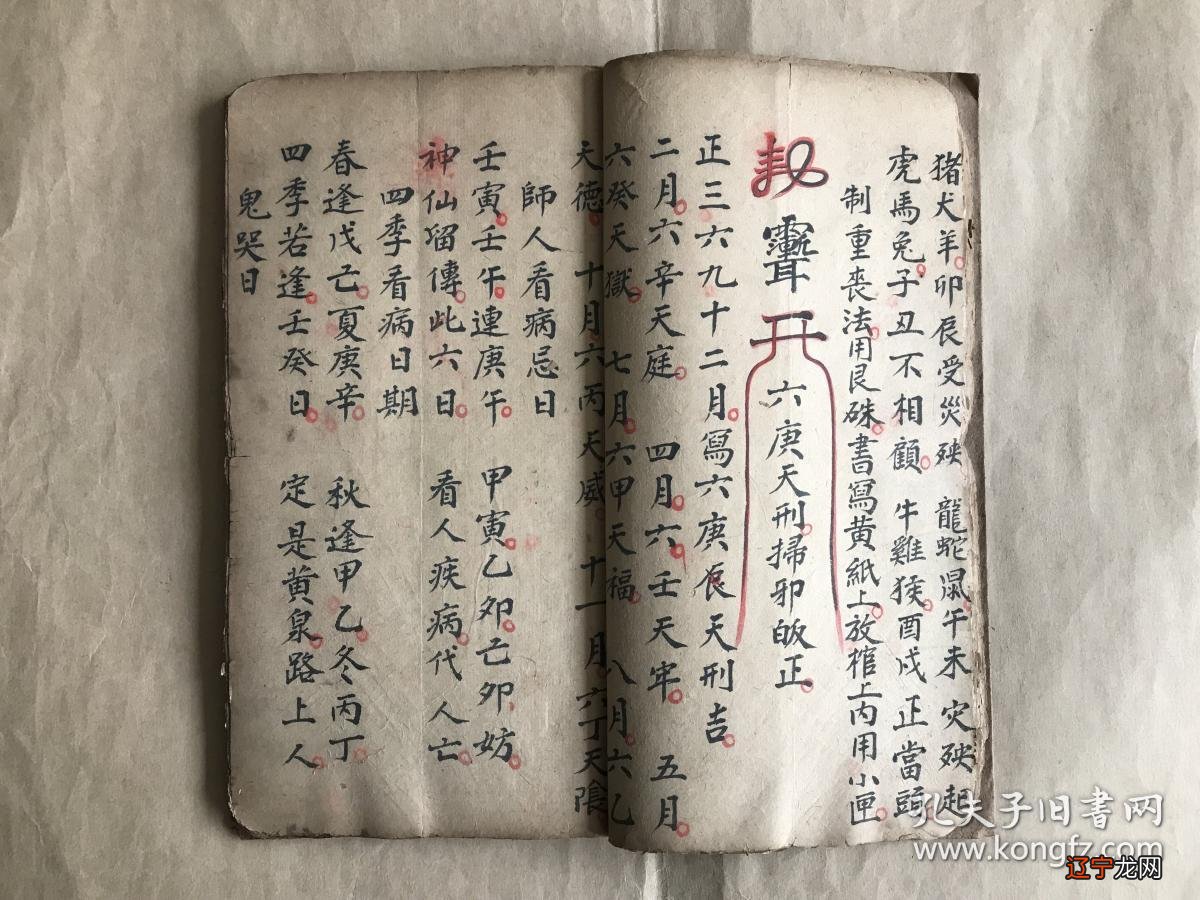 猪犬羊卯辰受災殃 龍蛇鼠午未灾殃起
虎馬兔子丑不相顧 牛雞猴酉戌正當頭
制重喪法用艮硃書寫黄紙上放棺上内用小匣
六庚天刑掃邪皈正
正三六九十二月寫六庚天刑吉
二月六辛天庭 四月六壬天牢 五月
六癸天獄 七月六甲天福 八月六乙
天德 十月六丙天威 十一月六丁天陰
師人看病忌日
壬寅壬午連庚午 甲寅乙卯己卯妨
神仙留傳此六日 看人疾病代人亡
四季看病日期
春逢戊己夏庚辛 秋逢甲乙冬丙丁
四季若逢壬癸日 定是黄泉路上人
鬼哭日
孔夫子旧書网
www.kongfz.com
辽宁龙网